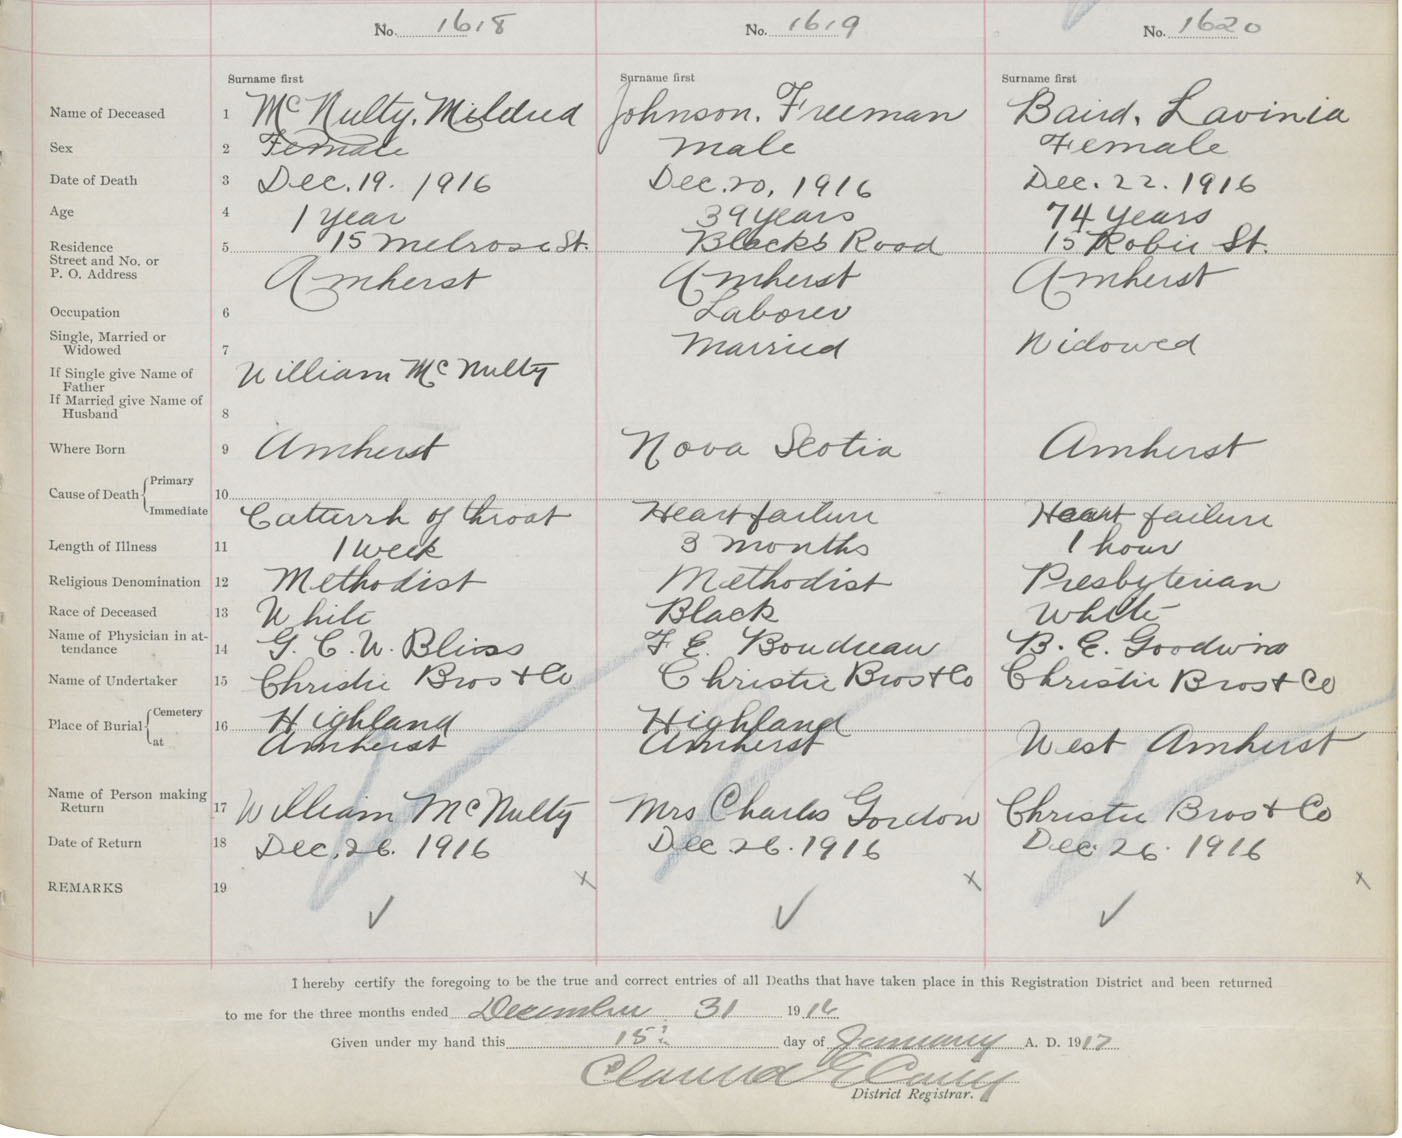 No. 1618 No. 1619 No. 1620
Surname first Surname first Surname first
Name of Deceased 1 McNulty, Mildred Johnson, Freeman Baird, Lavinia
Sex 2 Female Male Female
Date of Death 3 Dec. 19. 1916 Dec. 20, 1916 Dec. 22. 1916
Age 4 1 year 39 years 74 years
Residence 5 15 Melrose St. Blacks Road 15 Robie St.
Street and No. or
P. O. Address Amherst Amherst Amherst
Occupation 6 Laborer
Single, Married or
Widowed 7 Married Widowed
If Single give Name of
Father William McNulty
If Married give Name of
Husband 8
Where Born 9 Amherst Nova Scotia Amherst
Primary
Cause of Death 10
Immediate Catterrh of throat Heart failure Heart failure
Length of Illness 11 1 week 3 months 1 hour
Religious Denomination 12 Methodist Methodist Presbyterian
Race of Deceased 13 White Black White
Name of Physician in at-
tendance 14 G. C. W. Bliss F. E. Boudreau B. E. Goodwin
Name of Undertaker 15 Christie Bros + Co Christie Bros + Co Christie Bros + Co
Cemetery
Place of Burial 16 Highland Highland
at Amherst Amherst West Amherst
Name of Person making
Return 17 William McNulty Mrs Charles Gordon Christie Bros + Co
Date of Return 18 Dec. 26. 1916 Dec 26. 1916 Dec. 26. 1916
REMARKS 19 x x x
I hereby certify the foregoing to be the true and correct entries of all Deaths that have taken place in this Registration District and been returned
to me for the three months ended December 31 1916
Given under my hand this 15th day of January A. D. 1917
District Registrar.